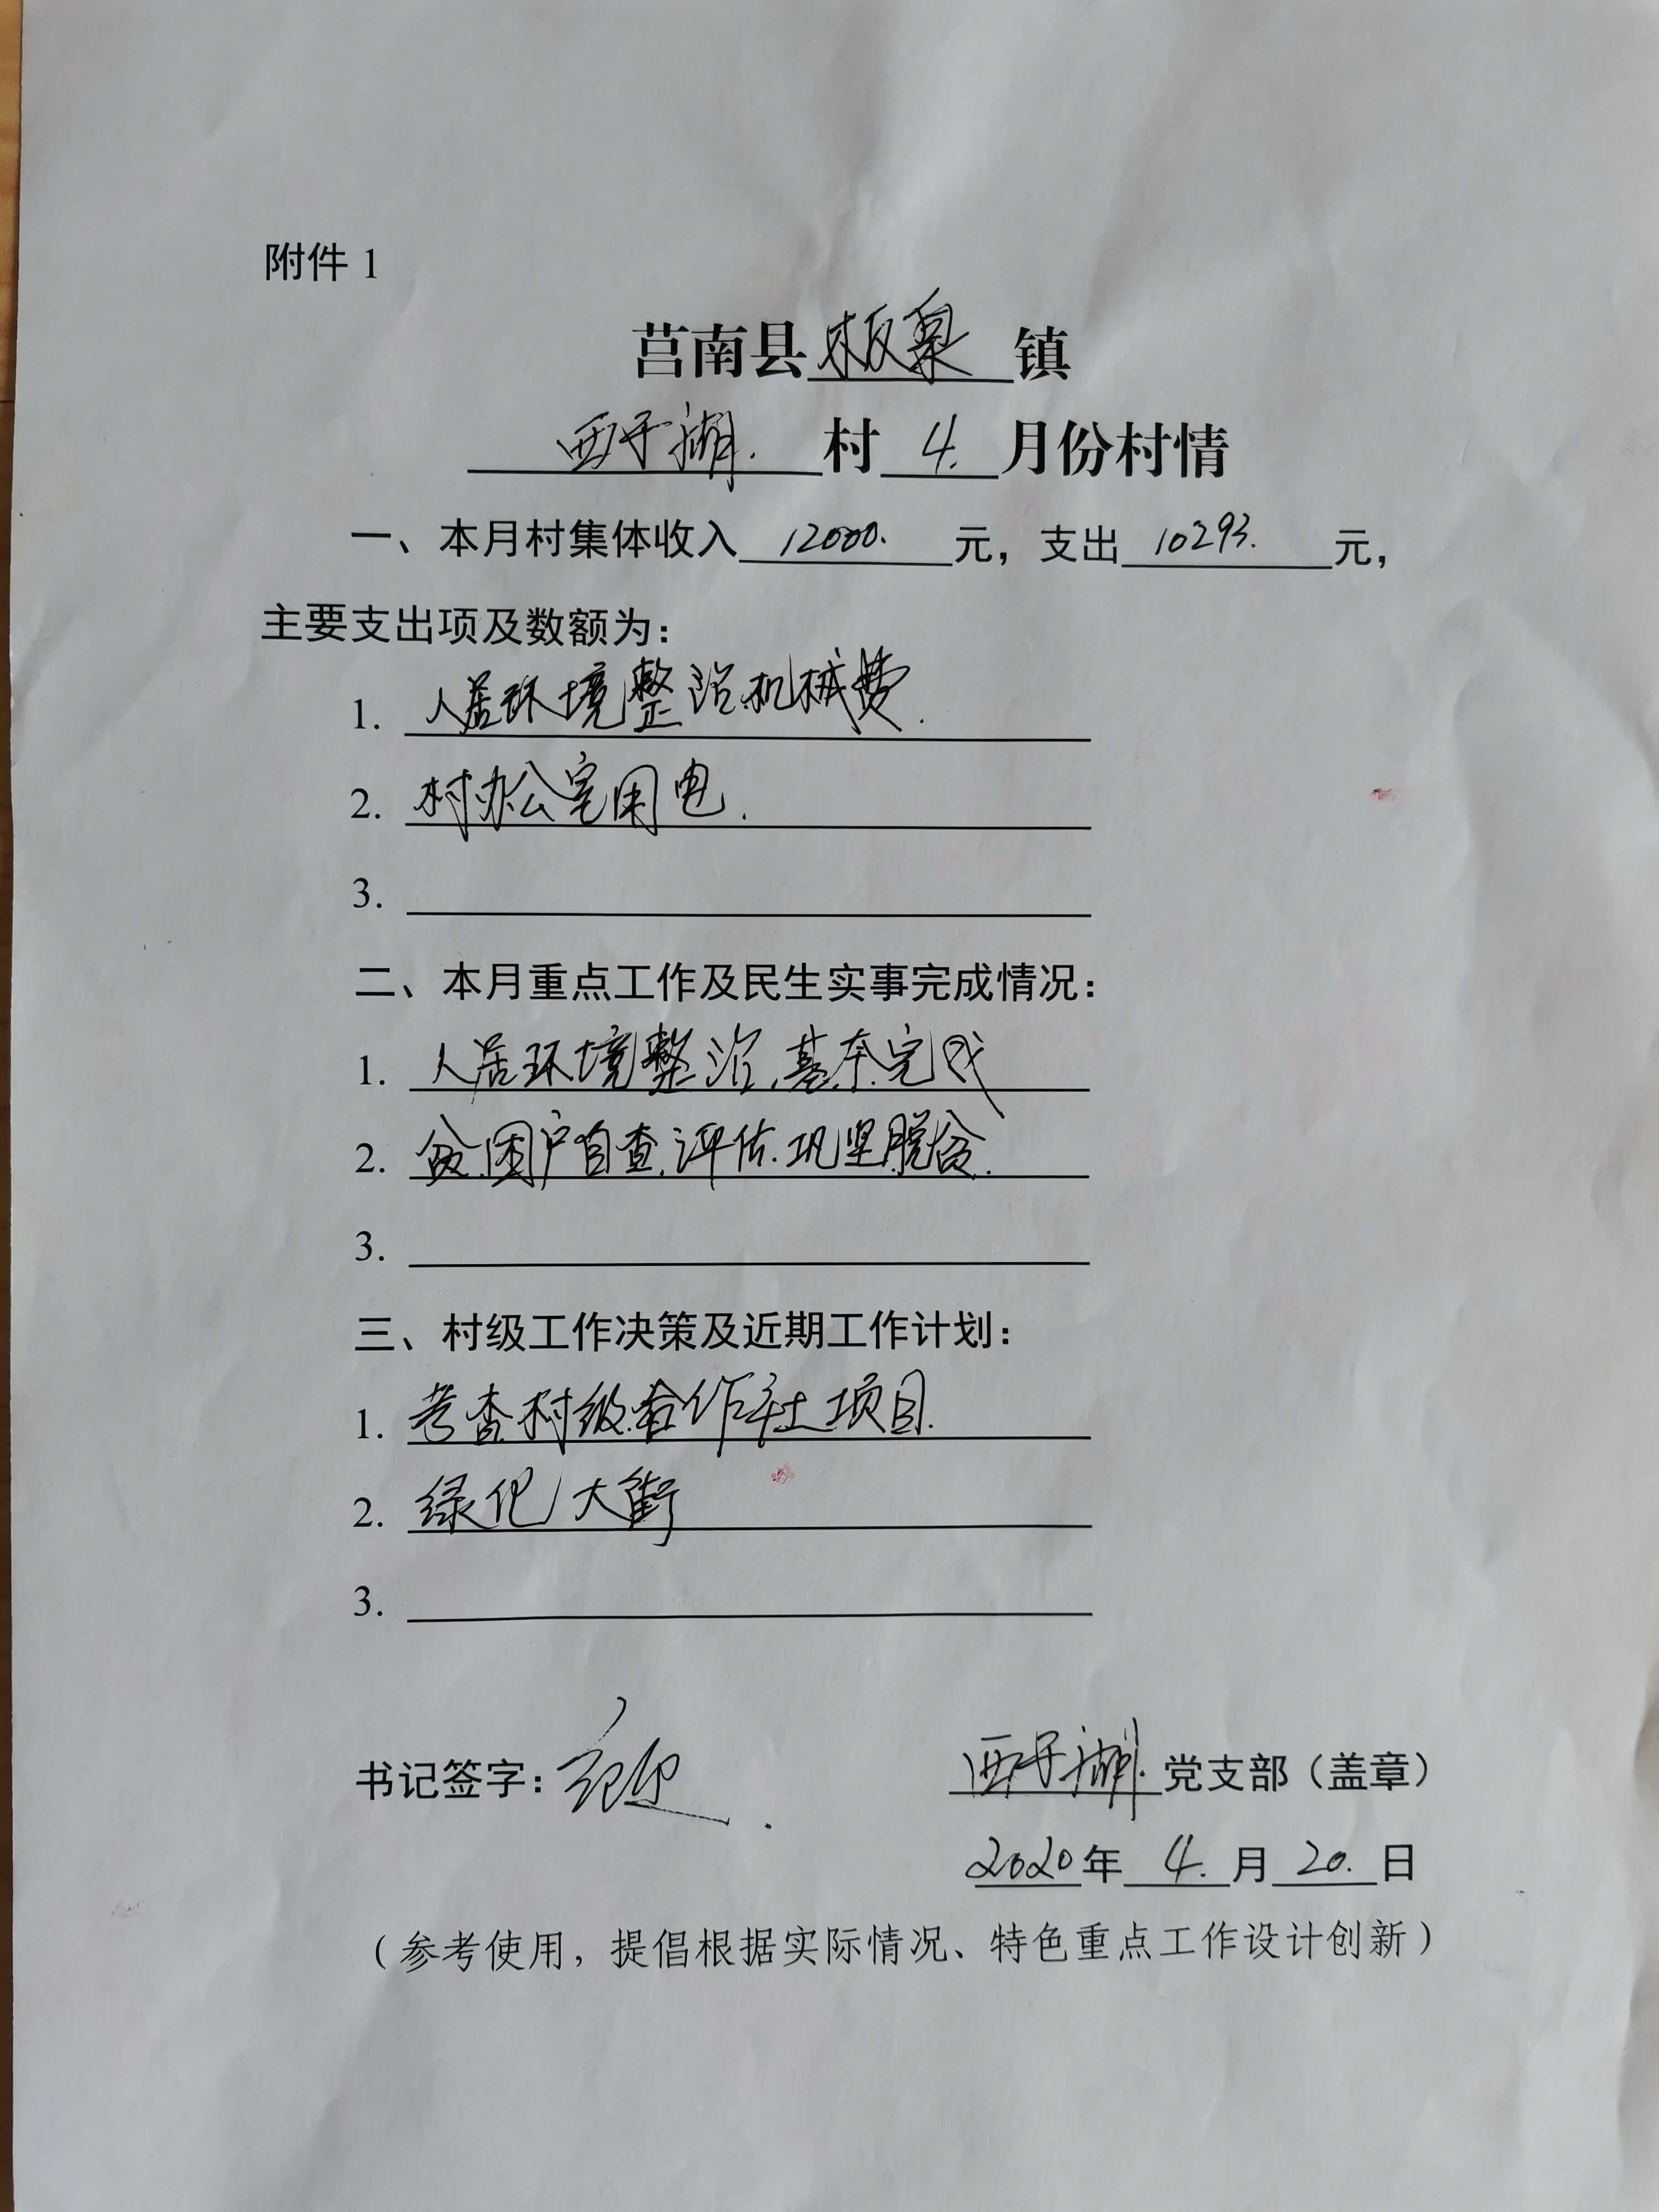 附件 1
莒南县板泉镇
西于湖.村4.月份村情
一、本月村集体收入12000.元，支出10293.元，
主要支出项及数额为：
1. 人居环境整治机械费.
2. 村办公室用电.
3.
二、本月重点工作及民生实事完成情况：
1. 人居环境整治.基本完成
2. 贫困户自查.评估.巩坚脱贫.
3.
三、村级工作决策及近期工作计划：
1. 考查村级合作社项目.
2. 绿化大街
3.
书记签字：
西于湖.党支部（盖章）
2020年4.月20.日
（参考使用，提倡根据实际情况、特色重点工作设计创新）